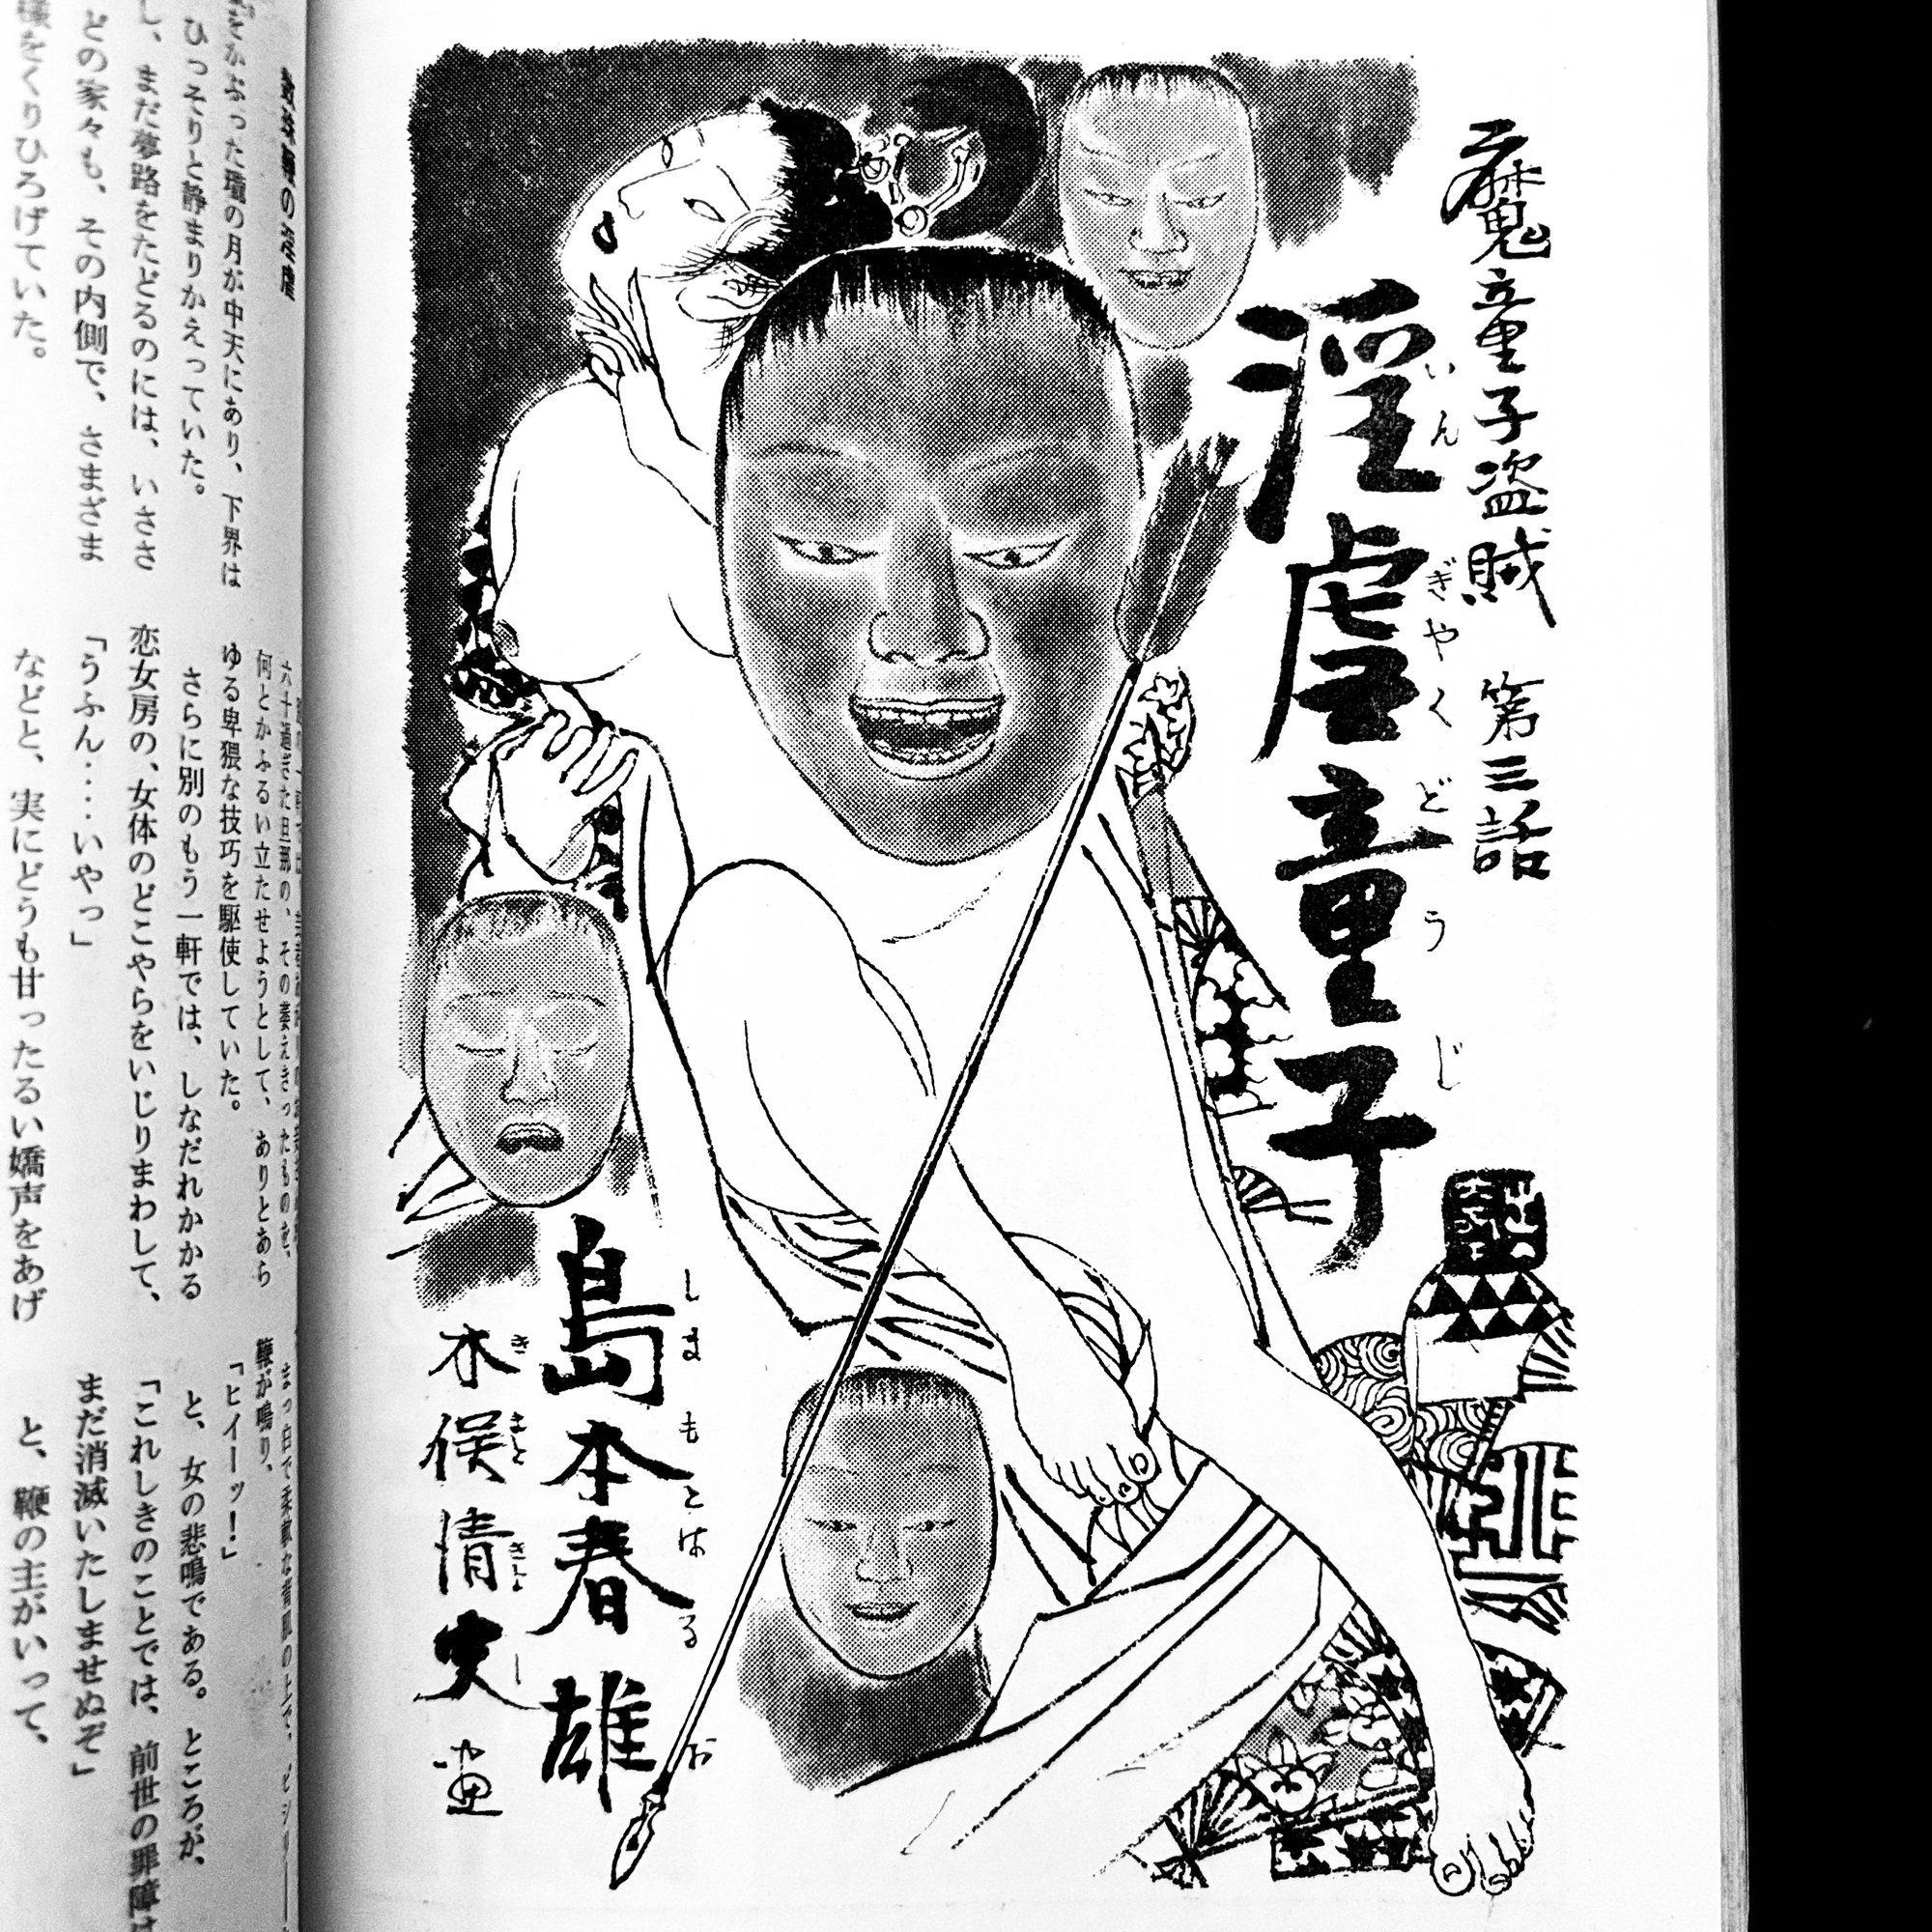 魔童子盗賊 第三話
淫虐童子
いんぎゃくどうじ
島本春雄
しまもとはるお
木俣清実画
きまたきよし
ひっそりと静まりかえっていた。
どの家々も、その内側で、さまざま
様をくりひろげていた。
六十過ぎた旦那の、その萎えきったものを、
何とかふるい立たせようとして、ありとあら
ゆる卑猥な技巧を駆使していた。
さらに別のもう一軒では、しなだれかかる
恋女房の、女体のどこやらをいじりまわして、
「うふん‥‥いやっ」
などと、実にどうも甘ったるい嬌声をあげ
鞭が鳴り、
「ヒイーッ！」
と、女の悲鳴である。ところが、
「これしきのことでは、前世の罪障は
まだ消滅いたしませぬぞ」
と、鞭の主がいって、